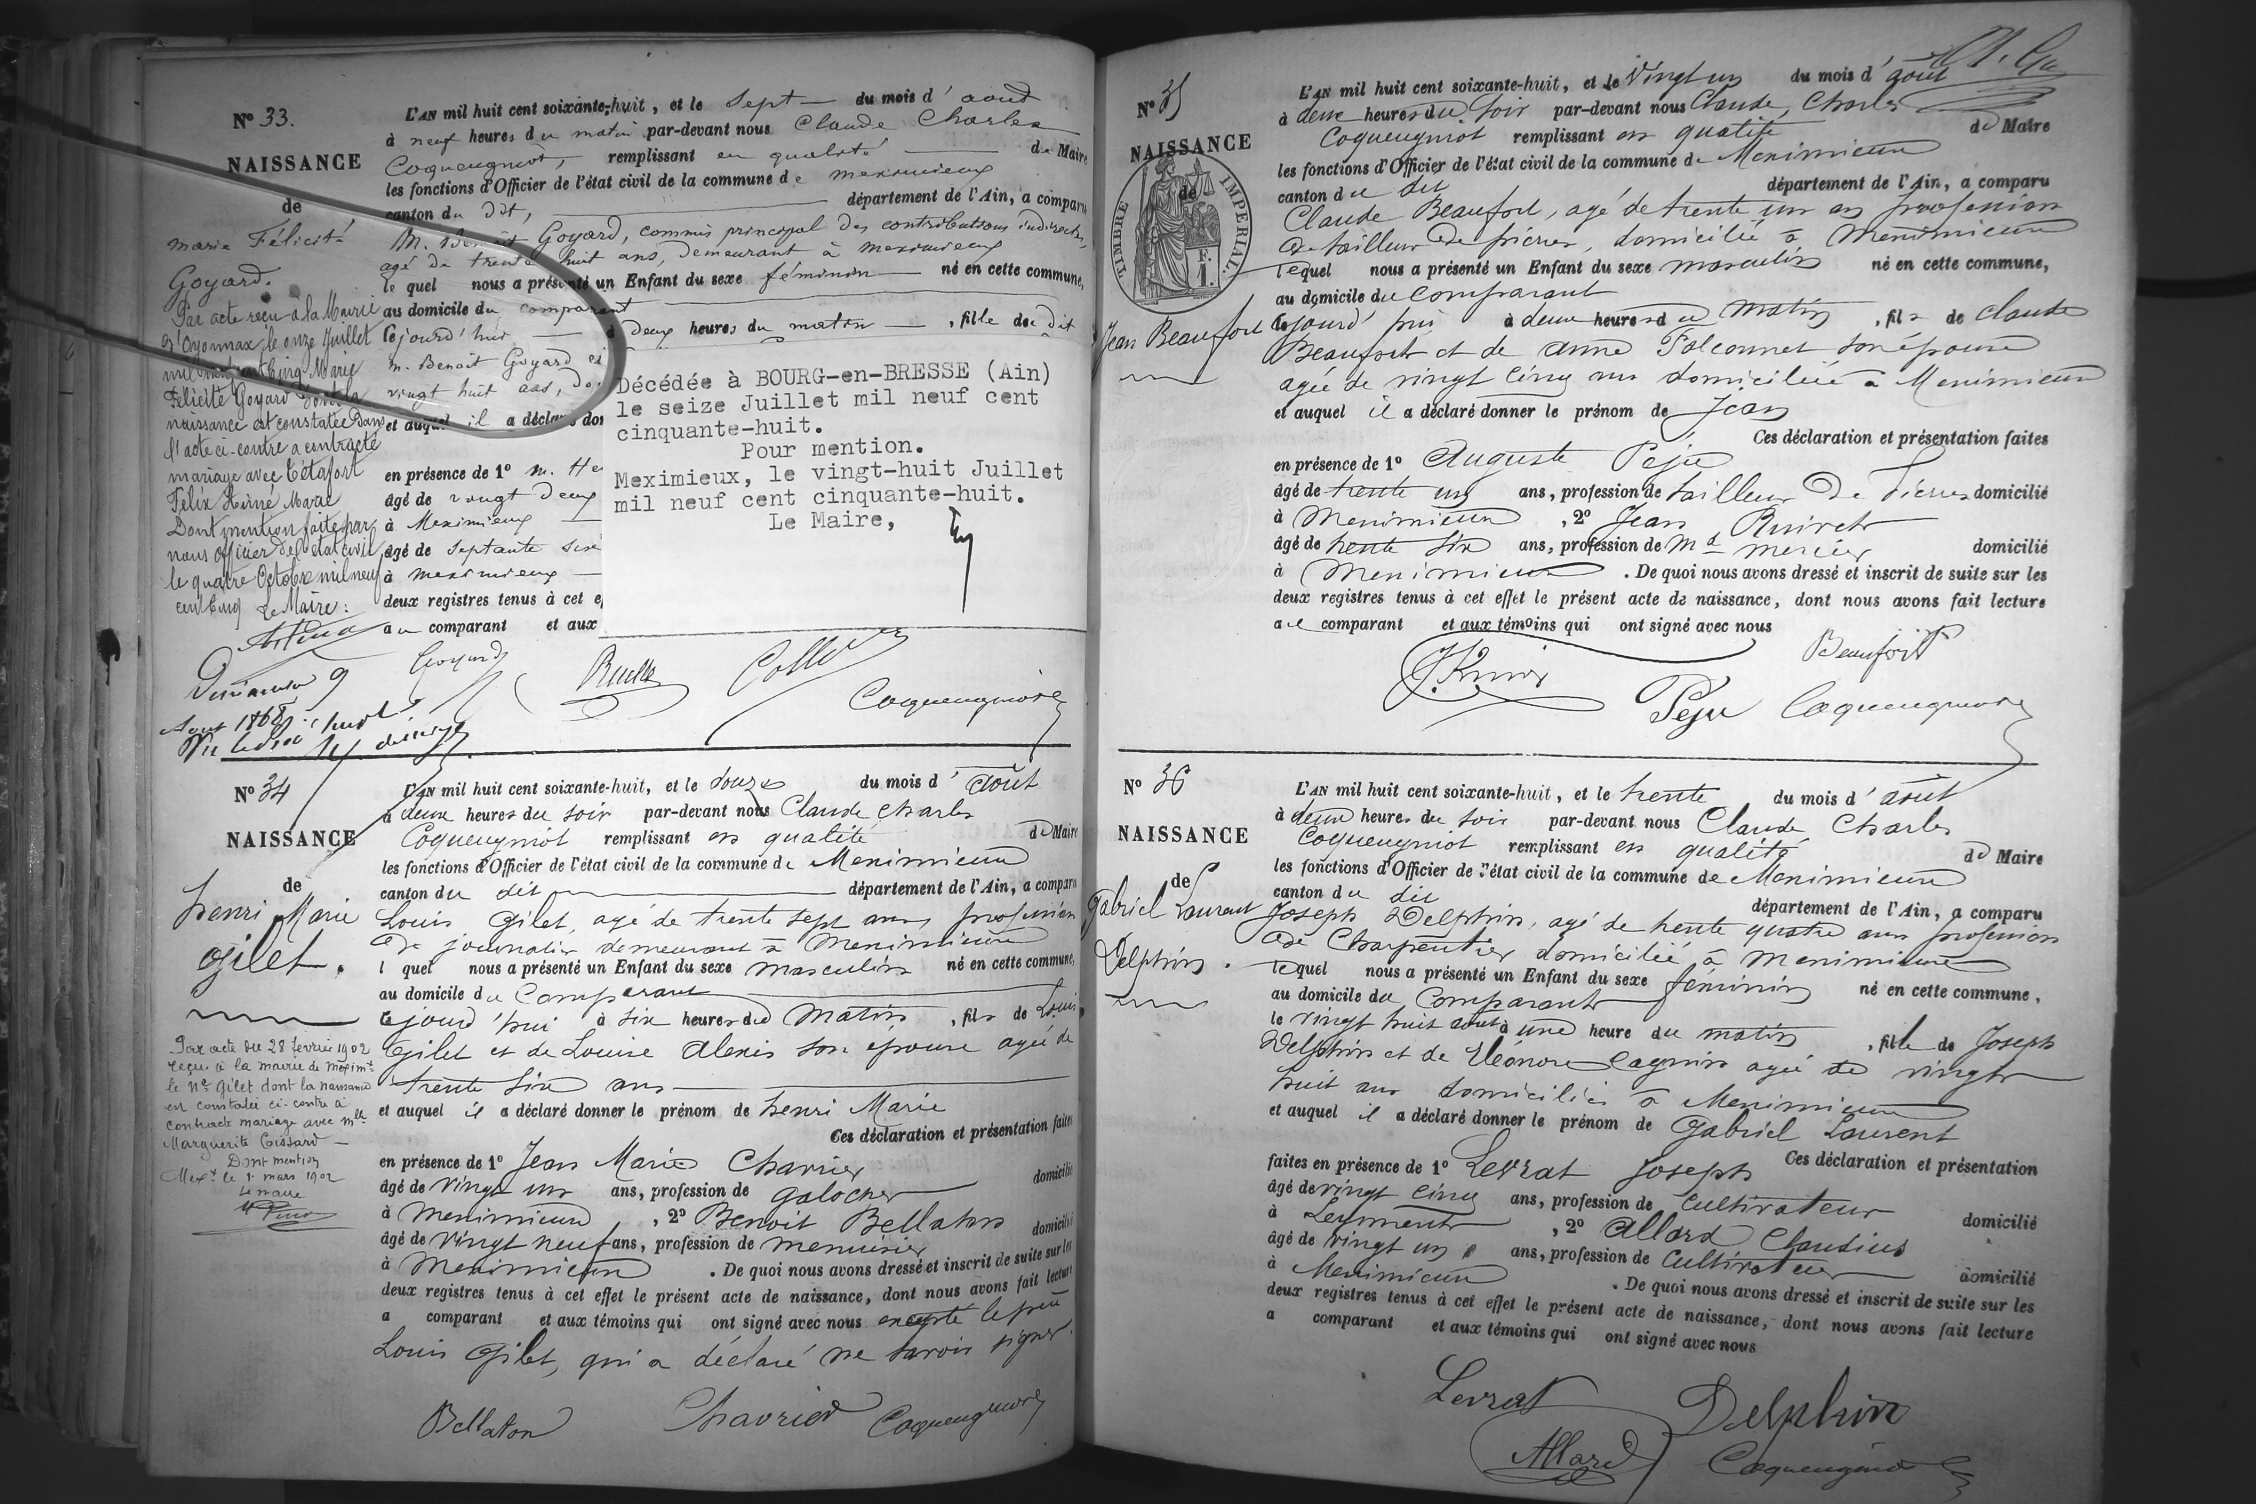 N° 33.
NAISSANCE
de
Marie Félicité
Goyard.
Par acte reçu à la Mairie
d'Oyonnax, le onze Juillet
mil neuf cent cinq Marie
Félicité Goyard dont la
naissance est constatée dans
l'acte ci-contre a contracté
mariage avec Tétafort
Félix Marie
Dont mention faite par
nous officier de l'état civil
le quatre Octobre mil neuf
cent cinq Le Maire :
L'AN mil huit cent soixante-huit, et le sept du mois d'août
à neuf heures du matin par-devant nous Claude Charles
Coqueugniot, remplissant en qualité de Maire
les fonctions d'Officier de l'état civil de la commune de Meximieux
canton du dit, département de l'Ain, a comparu
M. Benoit Goyard, commis principal des contributions indirectes,
agé de trente huit ans, demeurant à Meximieux
le quel nous a présenté un Enfant du sexe féminin né en cette commune,
au domicile du comparant
cejourd'hui à deux heures du matin, fille de dit
M. Benoit Goyard et
vingt huit ans,
et auquel il a déclaré
en présence de 1° M.
âgé de vingt deux
à Meximieux
âgé de septante
à Meximieux
deux registres tenus à cet
au comparant et aux
Décédée à BOURG-en-BRESSE (Ain)
le seize Juillet mil neuf cent
cinquante-huit.
Pour mention.
Meximieux, le vingt-huit Juillet
mil neuf cent cinquante-huit.
Le Maire,
Goyard Ruelle Collet
Coqueugniot
Dimanche 9
Aout 1868
N° 34
NAISSANCE
de
henri Marie
Gilet.
Par acte du 28 février 1902
reçu à la mairie de Mexim.
le né Gilet dont la naissance
est constatée ci-contre a
contracté mariage avec Mlle
Marguerite Coissard
Dont mention
Mex. le 1er mars 1902
Le maire
L'AN mil huit cent soixante-huit, et le douze du mois d'Août
à deux heures du soir par-devant nous Claude Charles
Coqueugniot remplissant en qualité de Maire
les fonctions d'Officier de l'état civil de la commune de Meximieux
canton du dit département de l'Ain, a comparu
Louis Gilet, agé de trente sept ans, profession
de journalier demeurant à Meximieux
l quel nous a présenté un Enfant du sexe masculin né en cette commune,
au domicile du Comparant
Cejourd'hui à six heures du matin, fils de Louis
Gilet et de Louise Alexis son épouse agée de
trente six ans
et auquel il a déclaré donner le prénom de henri Marie
Ces déclaration et présentation faites
en présence de 1° Jean Marie Charvier
âgé de vingt un ans, profession de galocher domicilié
à Meximieux, 2° Benoit Bellaton
âgé de vingt neuf ans, profession de menuisier domicilié
à Meximieux. De quoi nous avons dressé et inscrit de suite sur les
deux registres tenus à cet effet le présent acte de naissance, dont nous avons fait lecture
a comparant et aux témoins qui ont signé avec nous excepté le
Louis Gilet, qui a déclaré ne savoir signer.
Bellaton Charvier Coqueugniot
N° 35
NAISSANCE
de
TIMBRE IMPERIAL
F.
1.
Jean Beaufort
L'AN mil huit cent soixante-huit, et le Vingt un du mois d'août
à deux heures du soir par-devant nous Claude Charles
Coqueugniot remplissant en qualité de Maire
les fonctions d'Officier de l'état civil de la commune de Meximieux
canton du dit département de l'Ain, a comparu
Claude Beaufort, agé de trente un an profession
de tailleur de pierres, domicilié à Meximieux
lequel nous a présenté un Enfant du sexe masculin né en cette commune,
au domicile du comparant
Cejourd'hui à deux heures du matin, fils de Claude
Beaufort et de Anne Falconnet son épouse
agée de vingt cinq ans domiciliée à Meximieux
et auquel il a déclaré donner le prénom de Jean
Ces déclaration et présentation faites
en présence de 1° Auguste Péju
âgé de trente un ans, profession de tailleur de Pierres domicilié
à Meximieux, 2° Jean
âgé de trente six ans, profession de Md mercier domicilié
à Meximieux. De quoi nous avons dressé et inscrit de suite sur les
deux registres tenus à cet effet le présent acte de naissance, dont nous avons fait lecture
au comparant et aux témoins qui ont signé avec nous
Beaufort
Péju Coqueugniot
N° 36
NAISSANCE
de
Gabriel Laurent
Delphin.
L'AN mil huit cent soixante-huit, et le trente du mois d'août
à deux heures du soir par-devant nous Claude Charles
Coqueugniot remplissant en qualité de Maire
les fonctions d'Officier de l'état civil de la commune de Meximieux
canton du dit département de l'Ain, a comparu
Joseph Delphin, agé de trente quatre ans profession
de Charpentier domicilié à Meximieux
lequel nous a présenté un Enfant du sexe féminin né en cette commune,
au domicile du Comparant
le vingt huit août à une heure du matin, fille de Joseph
Delphin et de Eléonore Cagnin agée de vingt
huit ans domiciliés à Meximieux
et auquel il a déclaré donner le prénom de Gabriel Laurent
Ces déclaration et présentation
faites en présence de 1° Levrat Joseph
âgé de vingt cinq ans, profession de Cultivateur domicilié
à Leyment, 2° Allard Claudius
âgé de vingt un ans, profession de Cultivateur domicilié
à Meximieux. De quoi nous avons dressé et inscrit de suite sur les
deux registres tenus à cet effet le présent acte de naissance, dont nous avons fait lecture
a comparant et aux témoins qui ont signé avec nous
Levrat Delphin
Allard Coqueugniot